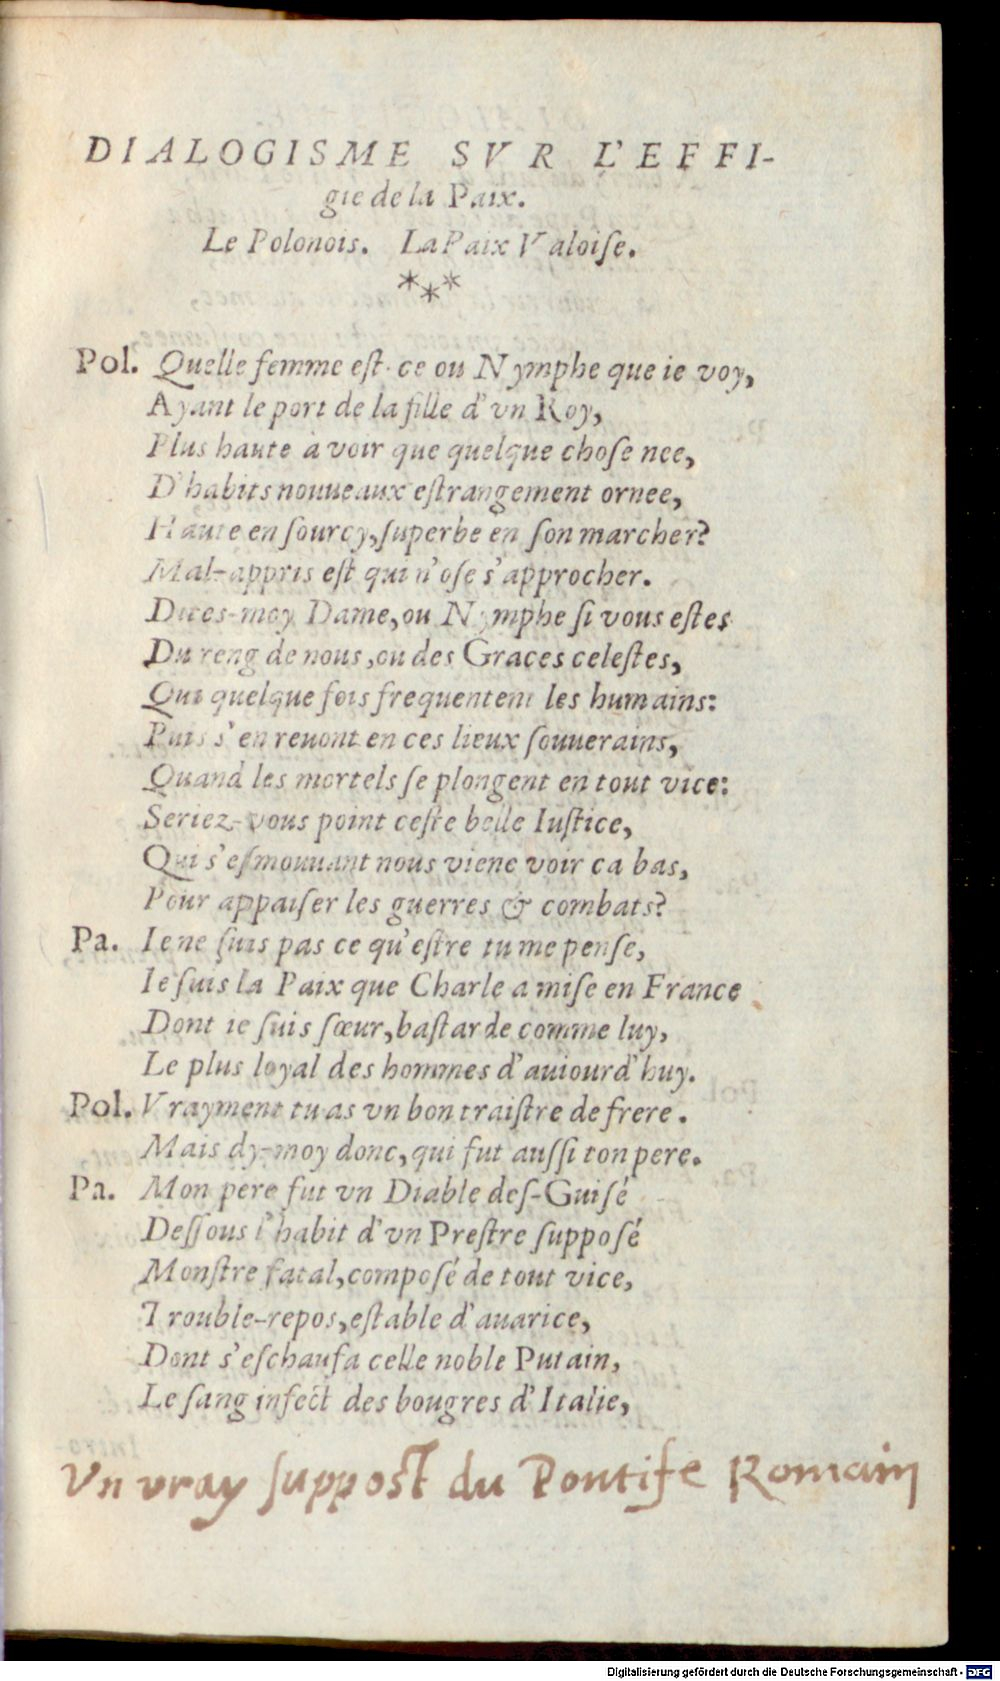 DIALOGISME SVR L'EFFI-
gie de la Paix.
Le Polonois. La Paix Valoise.
***
Pol. Quelle femme est-ce ou Nymphe que ie voy,
Ayant le port de la fille d'vn Roy,
Plus haute à voir que quelque chose nee,
D'habits nouueaux estrangement ornee,
Haute en sourcy, superbe en son marcher?
Mal-appris est qui n'ose s'approcher.
Dites-moy Dame, ou Nymphe si vous estes
Du reng de nous, ou des Graces celestes,
Qui quelque fois frequentent les humains:
Puis s'en reuont en ces lieux souuerains,
Quand les mortels se plongent en tout vice:
Seriez-vous point ceste belle Iustice,
Qui s'esmouuant nous viene voir ça bas,
Pour appaiser les guerres & combats?
Pa. Ie ne suis pas ce qu'estre tu me pense,
Ie suis la Paix que Charle a mise en France
Dont ie suis sœur, bastarde comme luy,
Le plus loyal des hommes d'auiourd'huy.
Pol. Vrayment tu as vn bon traistre de frere.
Mais dy-moy donc, qui fut aussi ton pere.
Pa. Mon pere fut vn Diable des-Guisé
Dessous l'habit d'vn Prestre supposé
Monstre fatal, composé de tout vice,
Trouble-repos, estable d'auarice,
Dont s'eschaufa celle noble Putain,
Le sang infect des bougres d'Italie,
Vn vray suppost du Pontife Romain
Digitalisierung gefördert durch die Deutsche Forschungsgemeinschaft - DFG